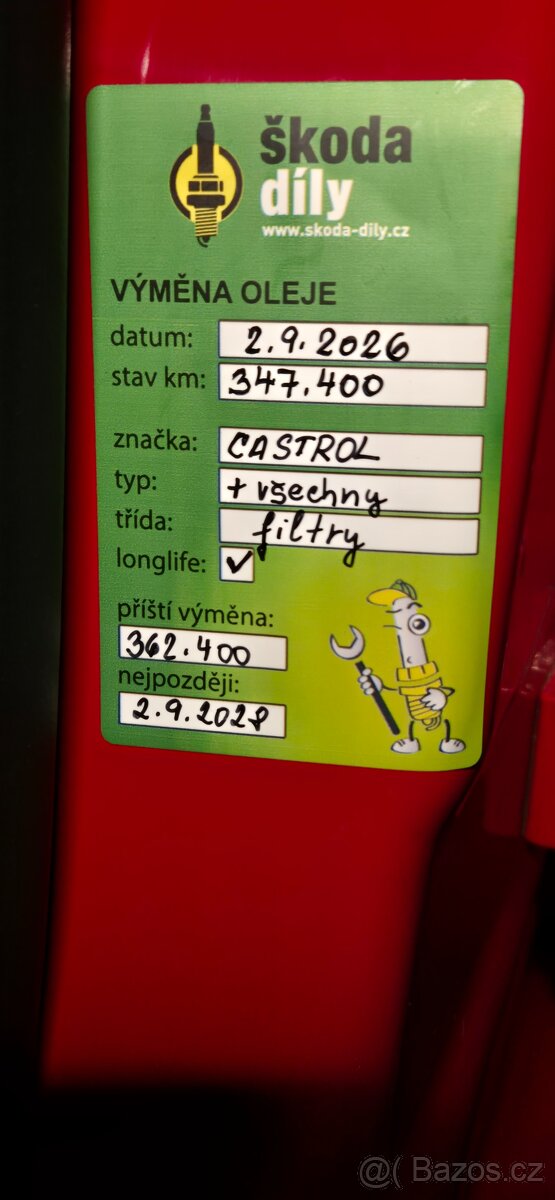 škoda
díly
www.skoda-dily.cz
VÝMĚNA OLEJE
datum: 2.9.2026
stav km: 347.400
značka: CASTROL
typ: + všechny
třída: filtry
longlife: ✓
příští výměna:
362.400
nejpozději:
2.9.2028
@( Bazos.cz